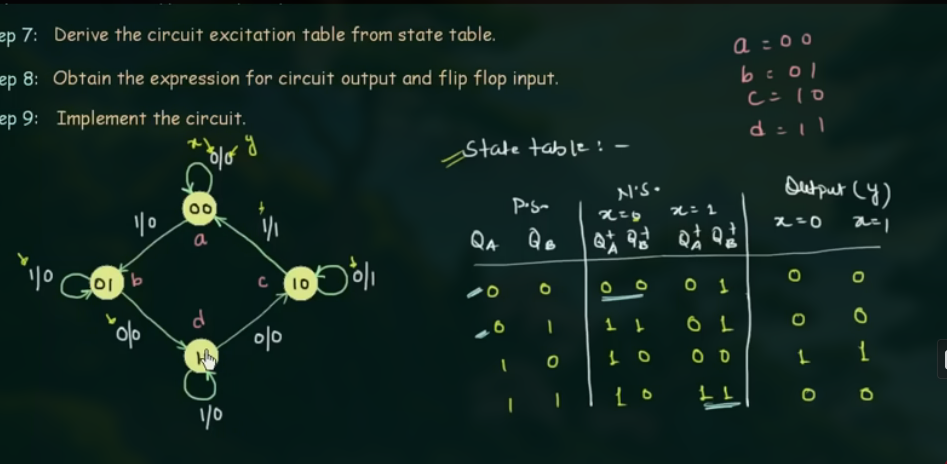 ep 7: Derive the circuit excitation table from state table.
ep 8: Obtain the expression for circuit output and flip flop input.
ep 9: Implement the circuit.
a = 00
b = 01
c = 10
d = 11
x y
0/0
00
a
1/0
1/1
1/0
01 b
c 10
0/1
0/0
d
0/0
1/0
State table : -
P.S. N.S. Output (y)
x=0 x=1 x=0 x=1
QA QB QA+ QB+ QA+ QB+
0 0 0 0 0 1 0 0
0 1 1 1 0 1 0 0
1 0 1 0 0 0 1 1
1 1 1 0 1 1 0 0